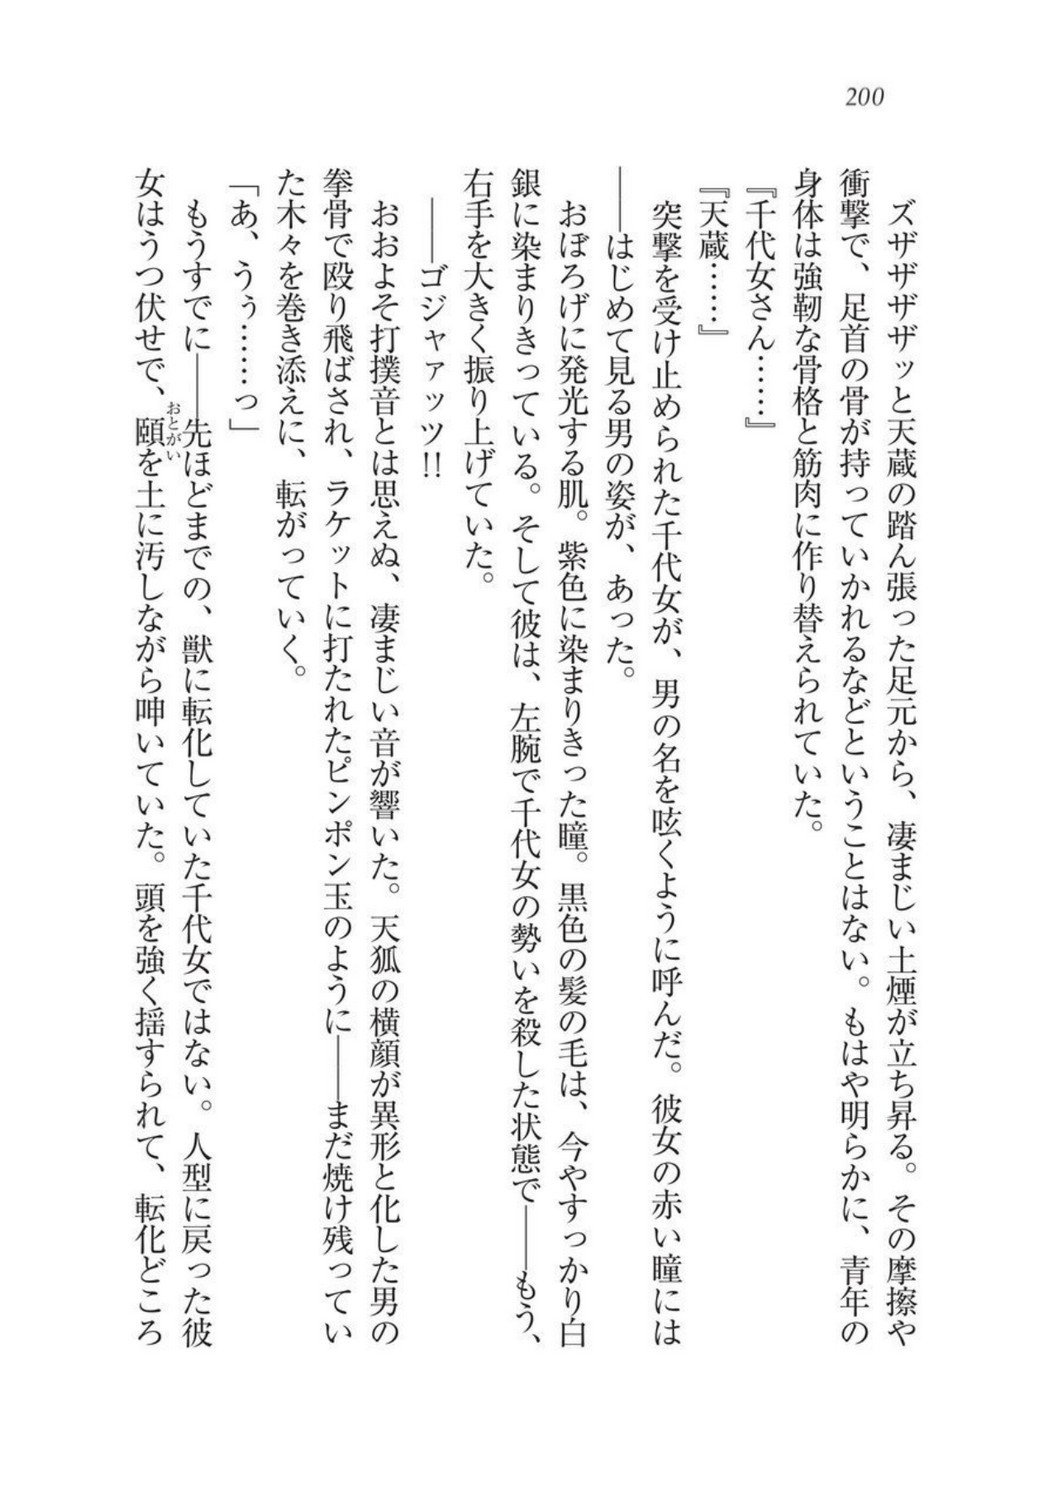 200
ズザザザザッと天蔵の踏ん張った足元から、凄まじい土煙が立ち昇る。その摩擦や
衝撃で、足首の骨が持っていかれるなどということはない。もはや明らかに、青年の
身体は強靭な骨格と筋肉に作り替えられていた。
『千代女さん……』
『天蔵……』
突撃を受け止められた千代女が、男の名を呟くように呼んだ。彼女の赤い瞳には
――はじめて見る男の姿が、あった。
おぼろげに発光する肌。紫色に染まりきった瞳。黒色の髪の毛は、今やすっかり白
銀に染まりきっている。そして彼は、左腕で千代女の勢いを殺した状態で――もう、
右手を大きく振り上げていた。
――ゴジャァッツ!!
おおよそ打撲音とは思えぬ、凄まじい音が響いた。天狐の横顔が異形と化した男の
拳骨で殴り飛ばされ、ラケットに打たれたピンポン玉のように――まだ焼け残ってい
た木々を巻き添えに、転がっていく。
「あ、うぅ……っ」
もうすでに――先ほどまでの、獣に転化していた千代女ではない。人型に戻った彼
女はうつ伏せで、頤おとがいを土に汚しながら呻いていた。頭を強く揺すられて、転化どころ